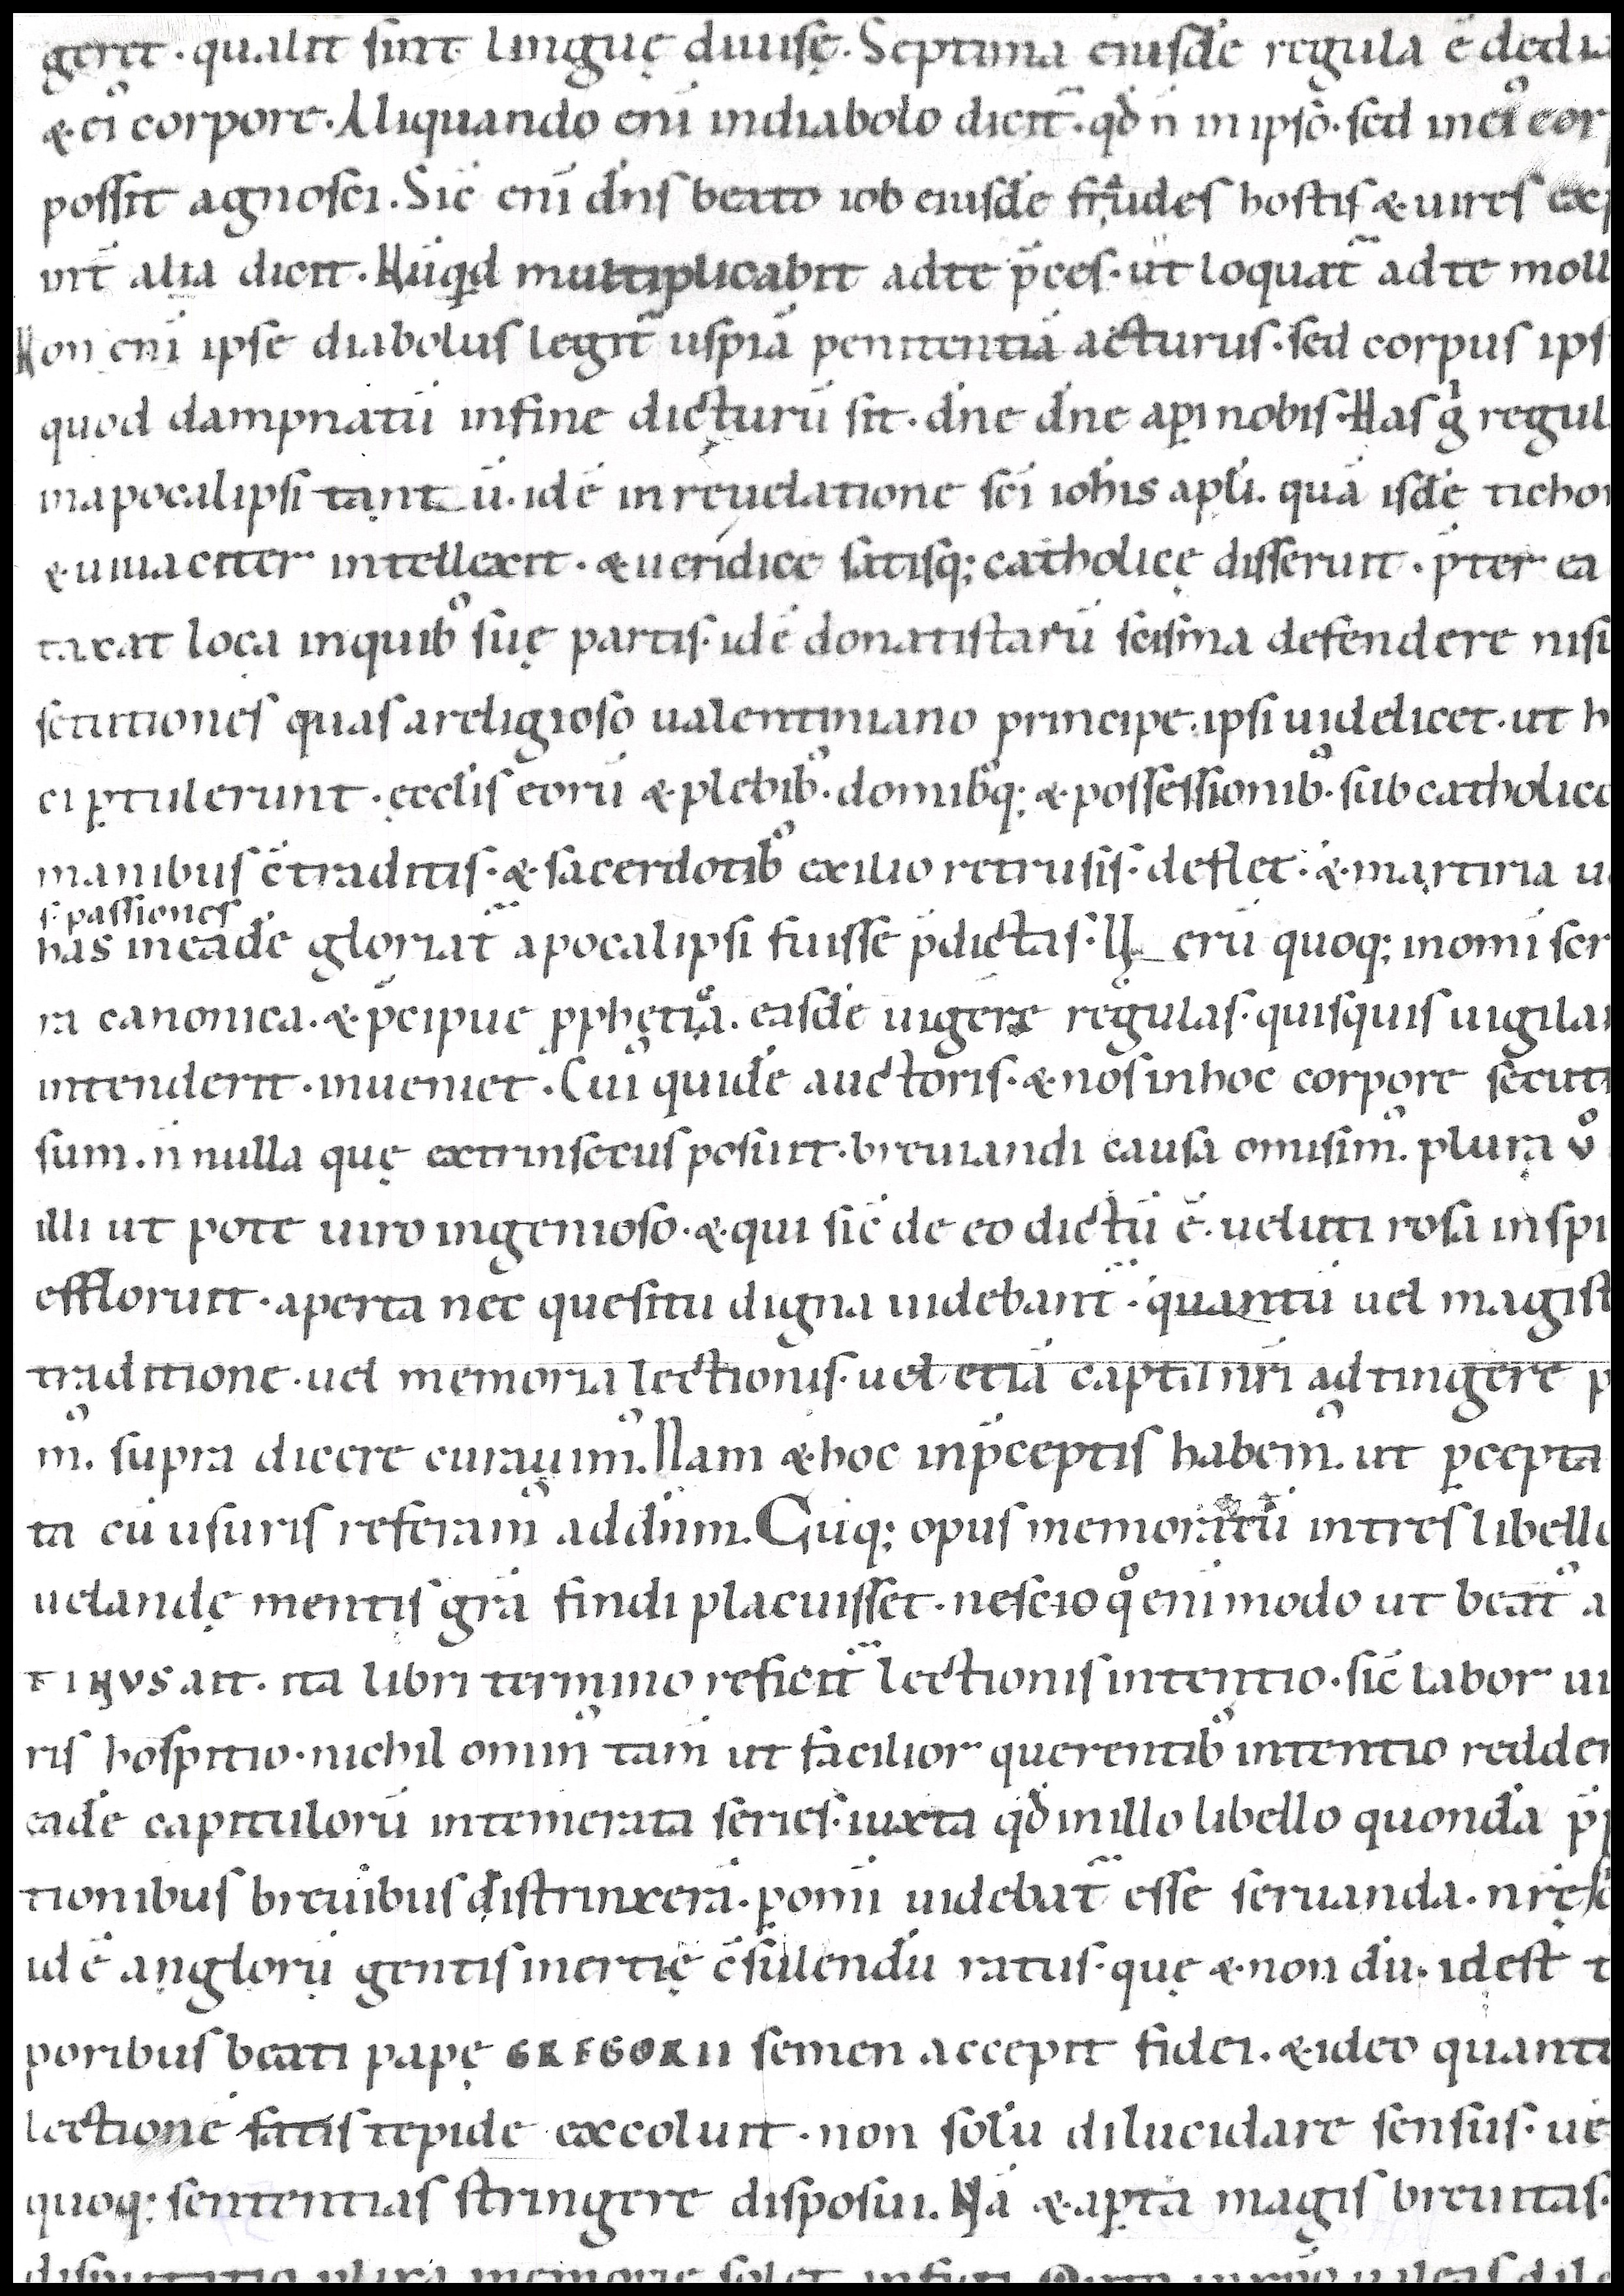 gerit · qualit sint linguę diuisę. Septima eiusdē regula ē dedia
& ei᾽ corpore. Aliquando eni̅ indiabolo dicit᷑. qđ n̅ in ipso. sed inei᾽ corp
possit agnosci. Sic̅ eni̅ dn̅s beato iob eiusdē fraudes hostis & uires exp
int̅ alia dicit. Nu̅qd multiplicabit adte p̅ces. ut loquat᷑ adte moll
Non eni̅ ipse diabolus legit᷑ uspiā penitentiā acturus. sed corpus ips
quod dampnatu̅ infine dicturu̅ sit. dn̅e dn̅e aꝑi nobis. Has g̊ regul
inapocalipsi tant u̅. idē inreuelatione sc̅i ioh̅is apl̅i. quā isdē ticho
& uiuaciter intellexit. & ueridice satisq; catholicę disseruit. p̅ter ea
taxat loca inquib᾽ suę partis. idē donatistaru̅ scisma defendere nisi
secutiones quas areligioso ualentiniano principe. ipsi uidelicet. ut h
ci ꝑtulerunt. ęccl̅is eoru̅ & plebib᾽. domib᾽q; & possessionib᾽. sub catholico
manibus c̅traditis. & sacerdotib᾽ exilio retrusis. deflet. & martiria u
s᷑ passiones
has ineadē gloriat᷑ apocalipsi fuisse p̅dictas. U eru̅ quoq; inomi̅ scr
ra canonica. & p̅cipue ꝓphętia̅. easdē uigere regulas. quisquis uigilan
intenderit. inueniet. Cui᾽ quidē auctoris. & nos inhoc corpore secuti
sum. n̅ nulla quę extrinsecus posuit. breuiandi causa omisim᾽. plura ů
illi ut pote uiro ingenioso. & qui sic̅ de eo dictu̅ ē. ueluti rosa inspi
effloruit. aperta nec quesitu digna uidebant᷑. quantu̅ uel magist
traditione. uel memoria lectionis. uel etiā captu nr̅i adtingere p
m᾽. supra dicere curauim᾽. Nam & hoc inp̅ceptis habem᾽. ut ꝑcepta
ta cu̅ usuris referam᾽ addn̅m. Cu̅q; opus memoratu̅ intres libello
uelandę mentis gr̅a findi placuisset. nescio q̊ eni̅ modo ut beat᾽ a
TINVS ait. ita libri termino reficit᷑ lectionis intentio. sic̅ labor ui
ris hospitio. nichil omin᾽ tam̅ ut facilior querentib᾽ intentio redder
eadē capituloru̅ intemerata series. iuxta qđ inillo libello quondā p̅
tionibus breuibus distrinxerā. ꝑ omi̅ uidebat᷑ esse seruanda. nr̅ę
idē angloru̅ gentis inertię c̅sulendu̅ ratus. quę & non du̅. idest t
poribus beati papę GREGORII semen accepit fidei. & ideo quantu
lectione satis tepide excoluit. non solu̅ dilucidare sensus. ue
quoq; sententias stringere disposui. Nā & aꝑta magis breuitas.